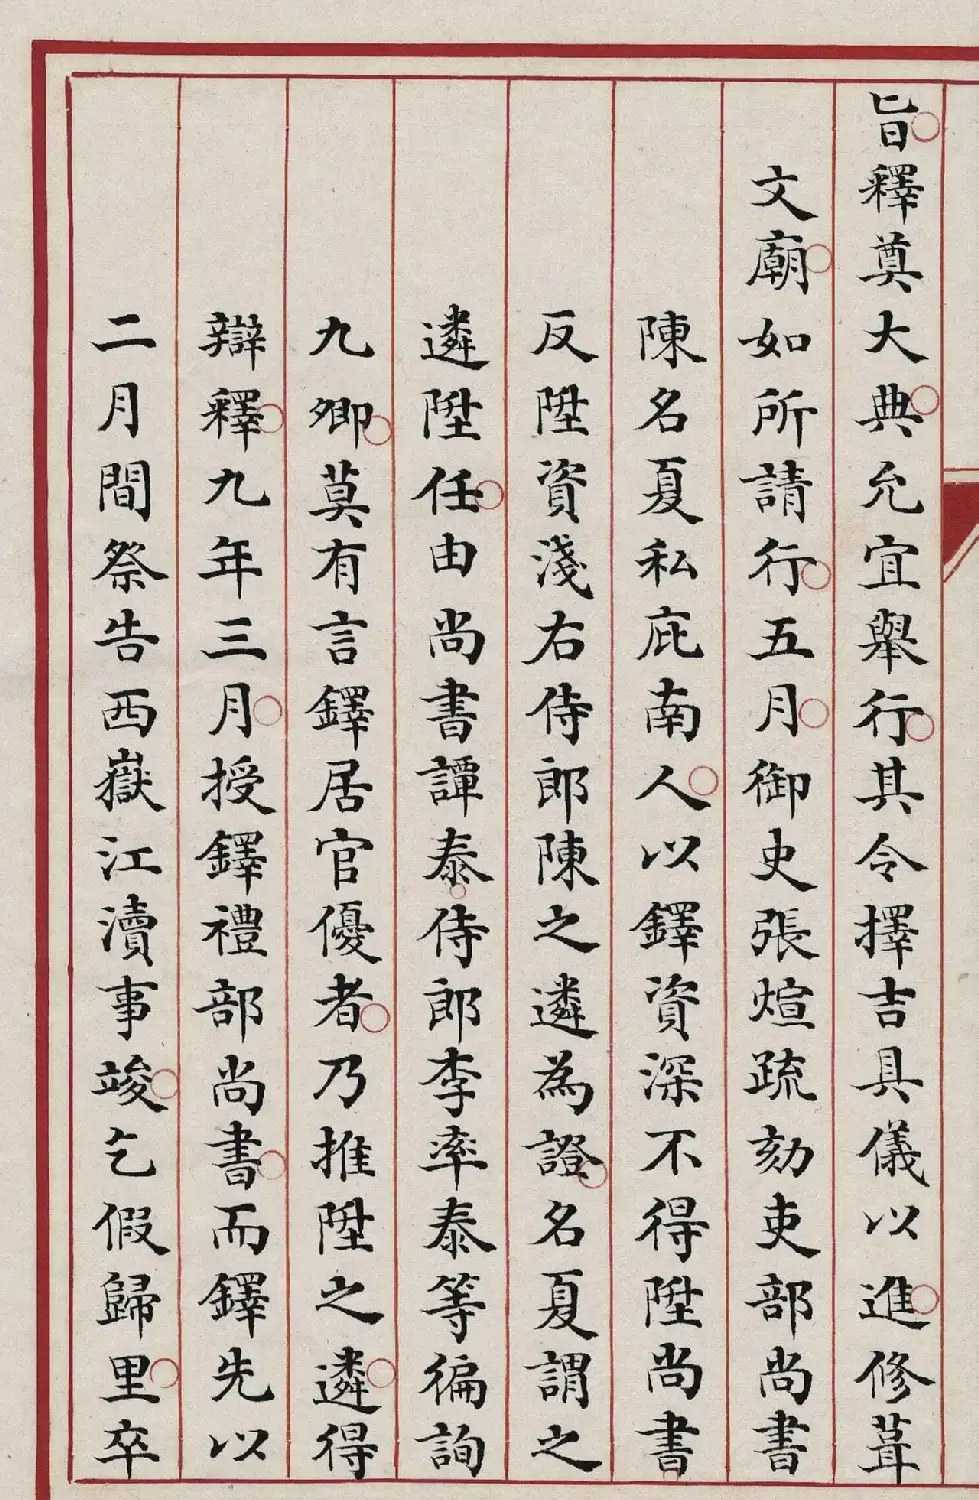 旨釋奠大典允宜舉行其令擇吉具儀以進修葺
文廟如所請行五月御史張煊疏劾吏部尚書
陳名夏私庇南人以鐸資深不得陞尚書
反陞資淺右侍郎陳之遴為證名夏謂之
遴陞任由尚書譚泰侍郎李率泰等徧詢
九卿莫有言鐸居官優者乃推陞之遴得
辯釋九年三月授鐸禮部尚書而鐸先以
二月間祭告西嶽江瀆事竣乞假歸里卒